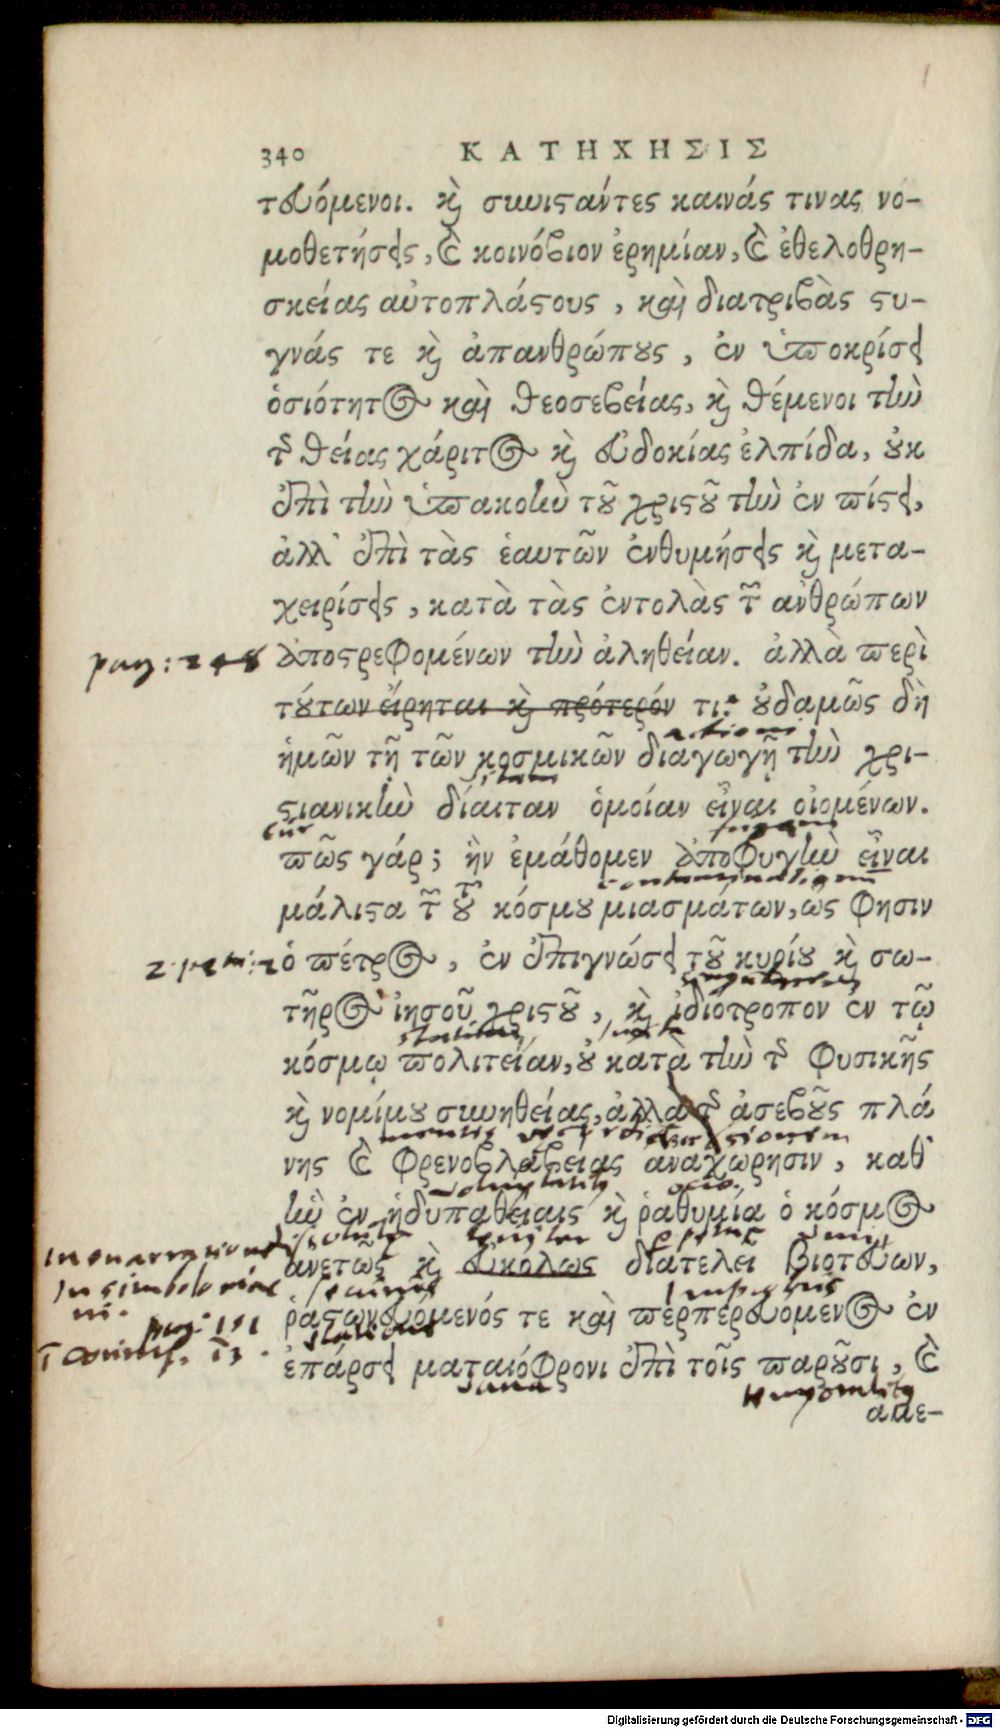 340 ΚΑΤΗΧΗΣΙΣ
τευόμενοι. καὶ συνιστάντες καινάς τινας νο-
μοθετήσεις, καὶ κοινόβιον ἐρημίαν, καὶ ἐθελοθρη-
σκείας αὐτοπλάστους, καὶ διατριβὰς στυ-
γνάς τε καὶ ἀπανθρώπους, ἐν ὑποκρίσει
ὁσιότητος καὶ θεοσεβείας, καὶ θέμενοι τὴν
τῆς θείας χάριτος καὶ εὐδοκίας ἐλπίδα, οὐκ
ἐπὶ τὴν ὑπακοὴν τοῦ χριστοῦ τὴν ἐν πίστει,
ἀλλ' ἐπὶ τὰς ἑαυτῶν ἐνθυμήσεις καὶ μετα-
χειρίσεις, κατὰ τὰς ἐντολὰς τῶν ἀνθρώπων
pag: 248 ἀποστρεφομένων τὴν ἀλήθειαν. ἀλλὰ περὶ
τούτων εἴρηται καὶ πρότερόν τι. οὐδαμῶς δὴ
ἡμῶν τῇ τῶν κοσμικῶν διαγωγῇ τὴν χρι-
στιανικὴν δίαιταν ὁμοίαν εἶναι οἰομένων.
πῶς γάρ; ἣν ἐμάθομεν ἀποφυγὴν εἶναι
contaminationum
μάλιστα τῶν τοῦ κόσμου μιασμάτων, ὥς φησιν
ὁ πέτρος, ἐν ἐπιγνώσει τοῦ κυρίου καὶ σω-
τῆρος ἰησοῦ χριστοῦ, καὶ ἰδιότροπον ἐν τῷ
κόσμῳ πολιτείαν, οὐ κατὰ τὴν τῆς φυσικῆς
καὶ νομίμου συνηθείας, ἀλλὰ τῆς ἀσεβοῦς πλά
νης καὶ φρενοβλαβείας ἀναχώρησιν, καθ'
voluptatib. ocio.
ἣν ἐν ἡδυπαθείαις καὶ ῥαθυμίᾳ ὁ κόσμος
ἀνετῶς καὶ εὐκόλως διατελεῖ βιοτεύων,
ῥᾳστωνευόμενός τε καὶ περπερευόμενος ἐν
pag: 191
ἐπάρσει ματαιόφρονι ἐπὶ τοῖς παροῦσι, καὶ
ἀμε-
Digitalisierung gefördert durch die Deutsche Forschungsgemeinschaft - DFG